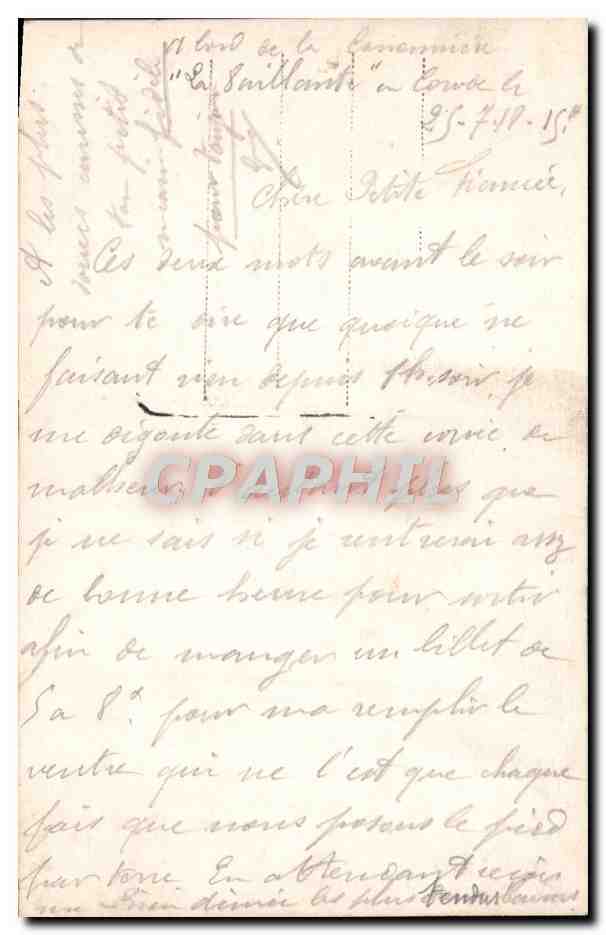 A bord de la Canonnière
"La Vaillante" en Corvée le
25-7-18 - 15h
Chère Petite Fiancée,
Ces deux mots avant le soir
pour te dire que quoique ne
faisant rien depuis 1h. soir, je
me dégoute dans cette corvée de
malheur, d'autant plus que
je ne sais si je rentrerai assez
de bonne heure pour sortir
afin de manger un billet de
5 a 8f. pour me remplir le
ventre qui ne l'est que chaque
fois que nous posons le pied
par terre. En attendant reçois
ma bien aimée les plus tendres baisers
A les plus
douces caresses de
ton petit
marin fidèle
pour toujours
CPAPHIL